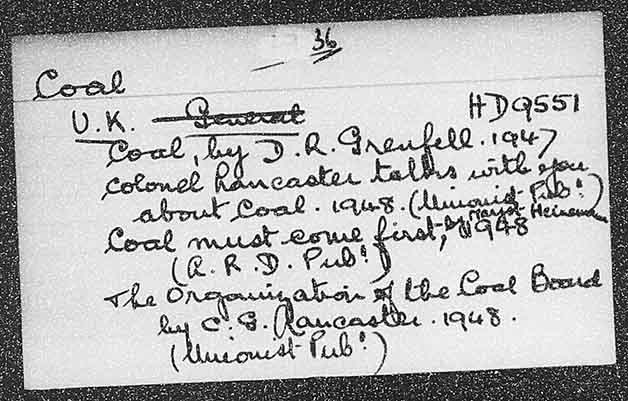 36
Coal
U.K. General HD9551
Coal, by D.R. Grenfell. 1947
Colonel Lancaster talks with you
about Coal. 1948. (Unionist Pub!)
Coal must come first, by Margot Heinemann 1948
(A.R.D. Pub!)
The Organization of the Coal Board
by C.G. Lancaster. 1948.
(Unionist Pub!)